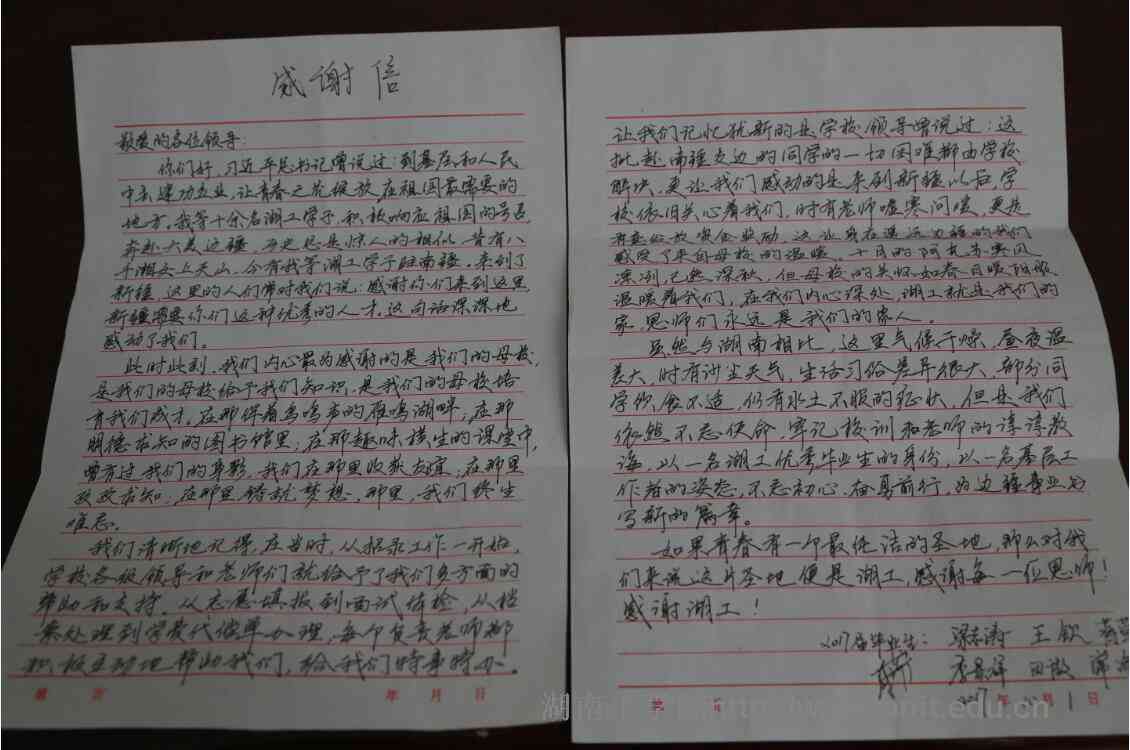 感谢信
敬爱的各位领导：
你们好，习近平总书记曾说过：到基层和人民
中去建功立业，让青春之花绽放在祖国最需要的
地方。我等十余名湖工学子积极响应祖国的号召
奔赴大美边疆，历史总是惊人的相似，昔有八
千湘女上天山，今有我等湖工学子驻南疆。来到了
新疆，这里的人们常对我们说：感谢你们来到这里
新疆需要你们这种优秀的人才，这句话深深地
感动了我们。
此时此刻，我们内心最为感谢的是我们的母校，
是我们的母校给予我们知识，是我们的母校培
育我们成才，在那伴着鸟鸣声的雁鸣湖畔；在那
明德求知的图书馆里；在那趣味横生的课堂中，
曾有过我们的身影，我们在那里收获友谊；在那里
孜孜求知，在那里铸就梦想，那里，我们终生
难忘。
我们清晰地记得，在当时，从招录工作一开始，
学校各级领导和老师们就给予了我们多方面的
帮助和支持，从志愿填报到面试体检，从档
案处理到学费代偿单办理，每个负责老师都
积极主动地帮助我们，给我们特事特办。
年 月 日
让我们记忆犹新的是学校领导曾说过：这
批赴南疆支边的同学的一切困难都由学校
解决，更让我们感动的是来到新疆以后，学
校依旧关心着我们，时有老师嘘寒问暖，更是
发放资金奖励，这让身在遥远边疆的我们
感受了来自母校的温暖。十月的阿克苏寒风
凛冽，已然深秋，但母校的关怀如春日暖阳般
温暖着我们，在我们内心深处，湖工就是我们的
家，恩师们永远是我们的家人。
虽然与湖南相比，这里气候干燥，昼夜温
差大，时有沙尘天气，生活习俗差异很大，部分同
学饮食不适，仍有水土不服的症状，但是我们
依然不忘使命，牢记校训和老师的谆谆教
诲，以一名湖工优秀毕业生的身份，以一名基层工
作者的姿态，不忘初心，奋勇前行，为边疆事业书
写新的篇章。
如果青春有一个最纯洁的圣地，那么对我
们来说这片圣地便是湖工，感谢每一位恩师！
感谢湖工！
2017届毕业生： 梁志涛 王钦
田敬
2017年 月1日
湖南 .edu.cn